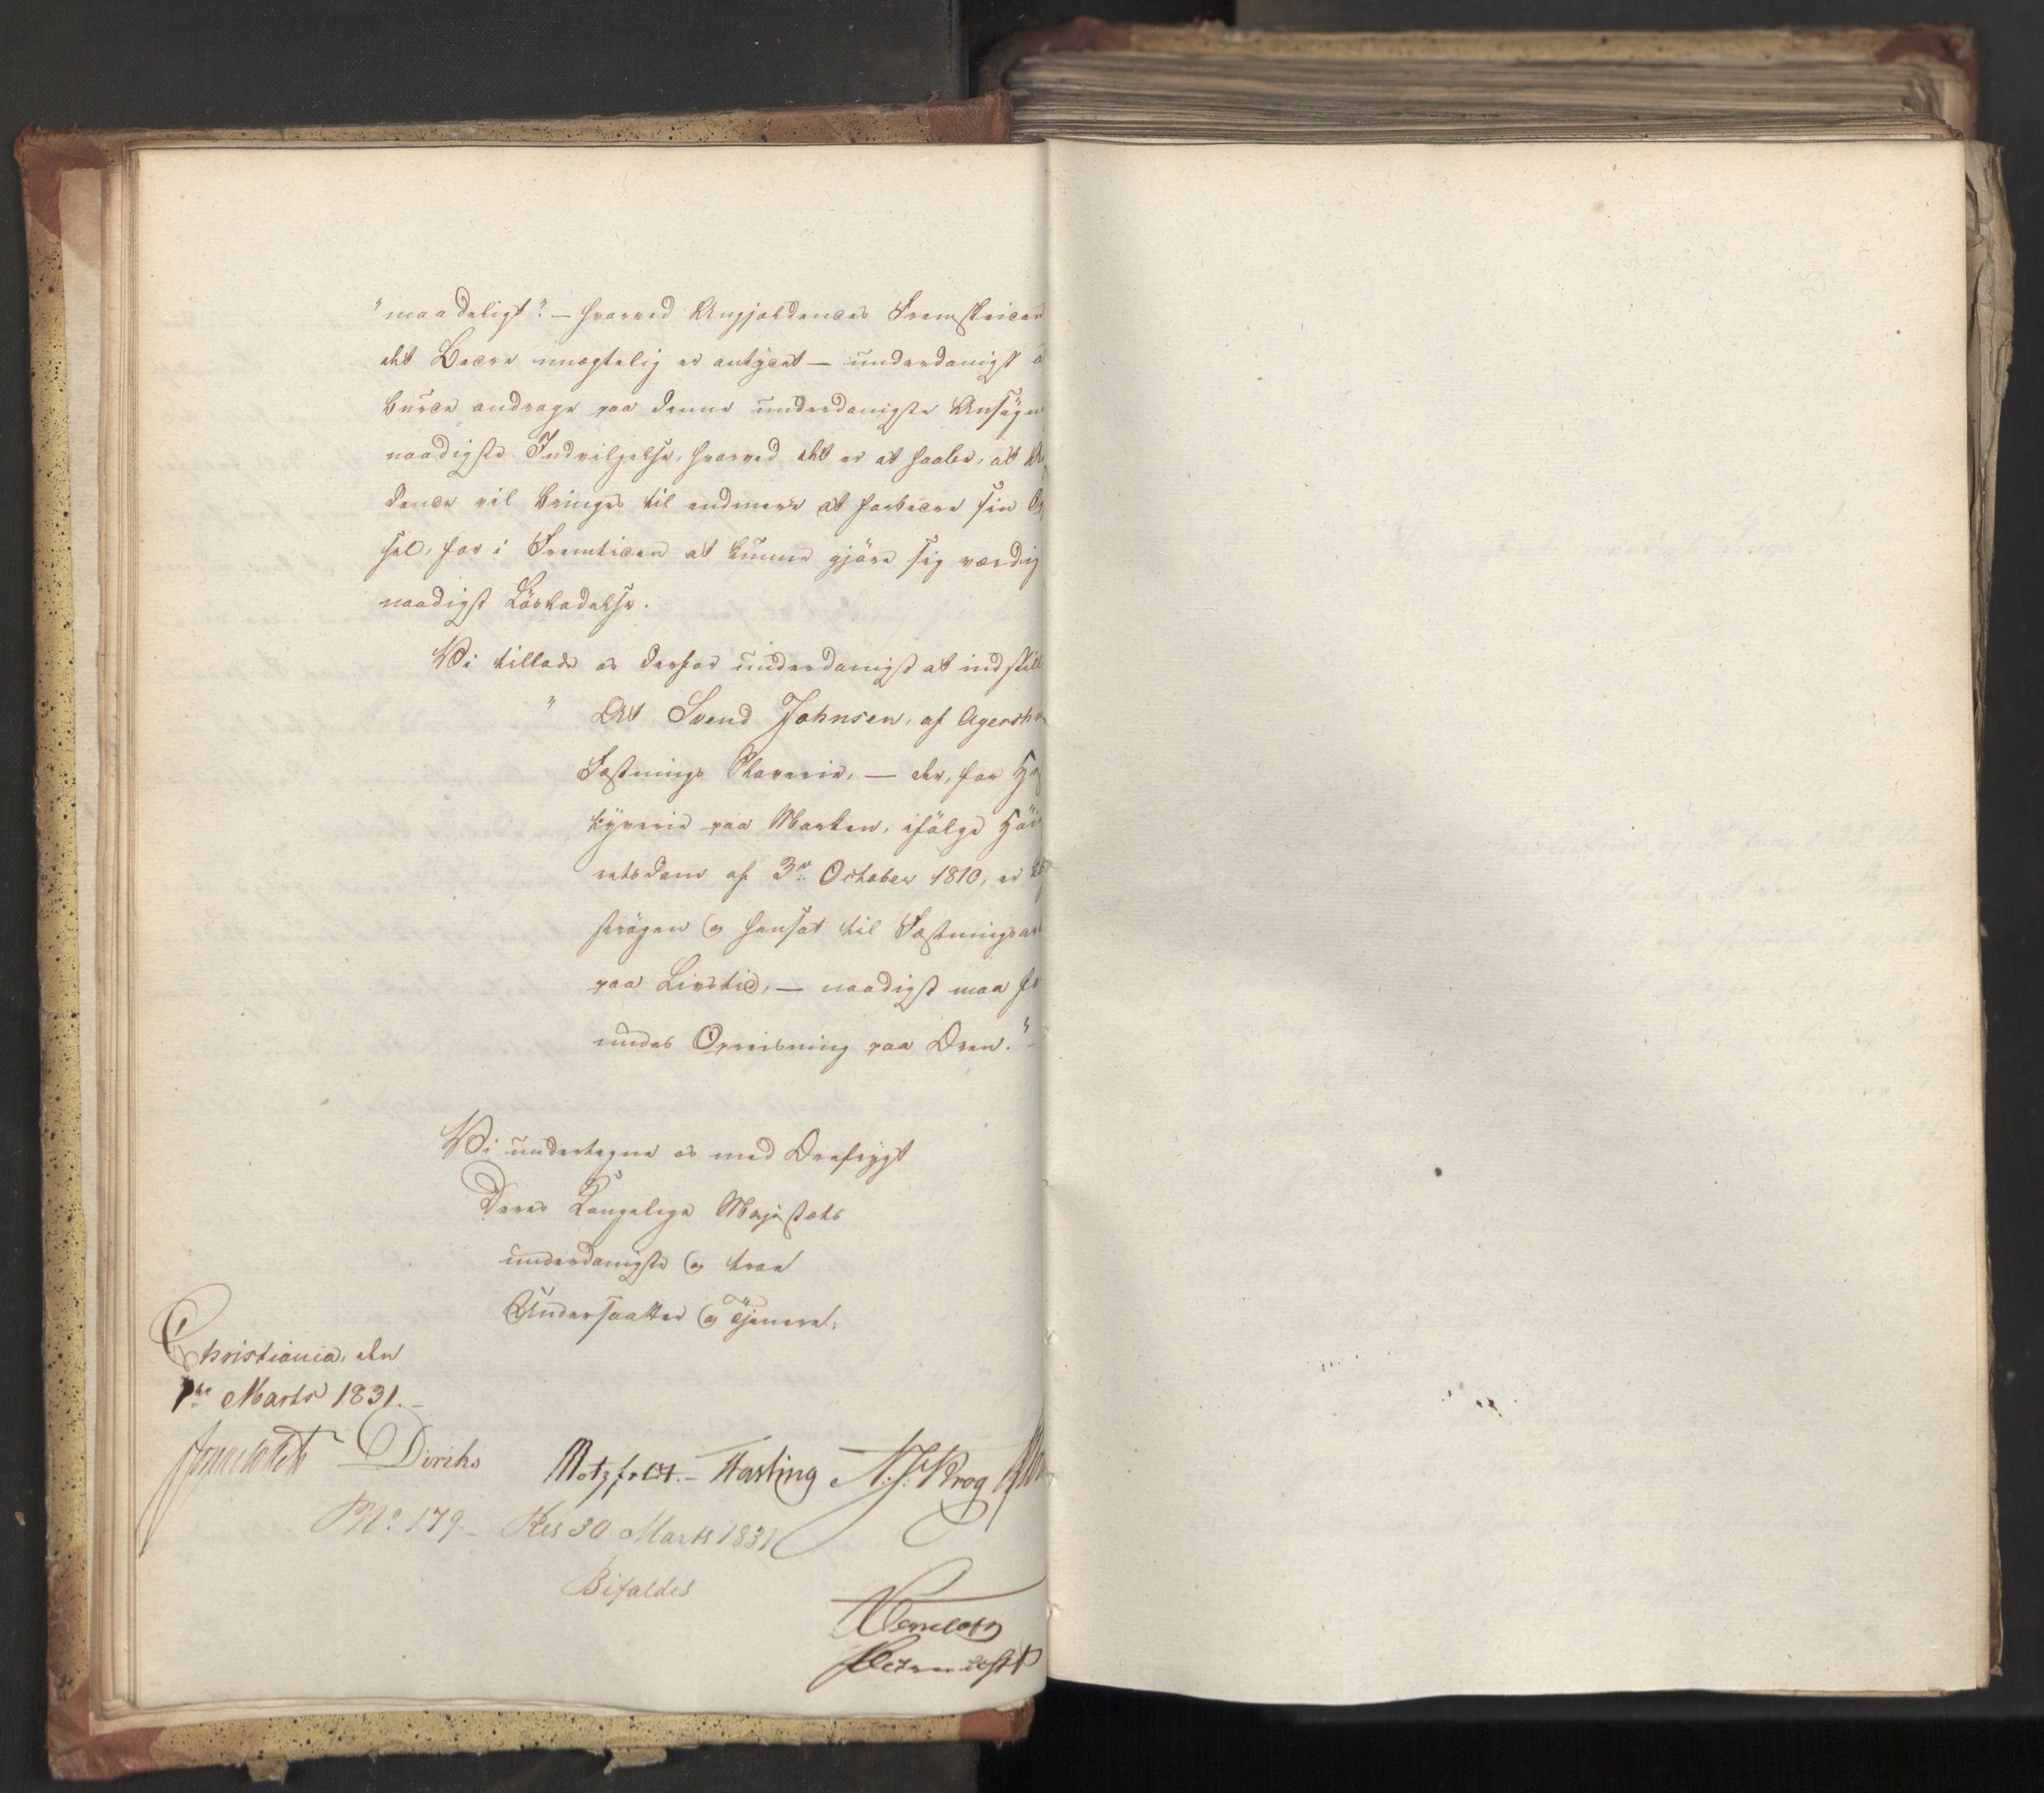 "maadeligt". — hvorved Angjældendes Fremskriden
det Bedre unægtelig er antydet — underdanigst
burde andrage paa denne underdanigste Ansøgn
naadigste Indvilgelse, hvorved det er at haabe, at
dende vil bringes til endmere at forbedre sin
sel, for i Fremtiden at kunne gjøre sig værdig
naadigst Løsladelse.
Vi tillade os derfor underdanigst at indstill
" At Svend Johnsen, af Agersh
Fæstnings Slaverie, — der, for
tyverie paa Marken, ifølge Høi
retsdom af 3die October 1810, er
strøgen og hensat til Fæstningsar
paa Livstid, — naadigst maa
undes Opreisning paa Æren."
Vi undertegne os med Ærefrygt
Deres Kongelige Majestæts
underdanigste og troe
Undersaatter og Tjenere.
Christiania, den
1ste Marts 1831.
Diriks Motzfeldt. Fasting N. J. Krog
No 179. Res 30 Marts 1831
Bifaldes